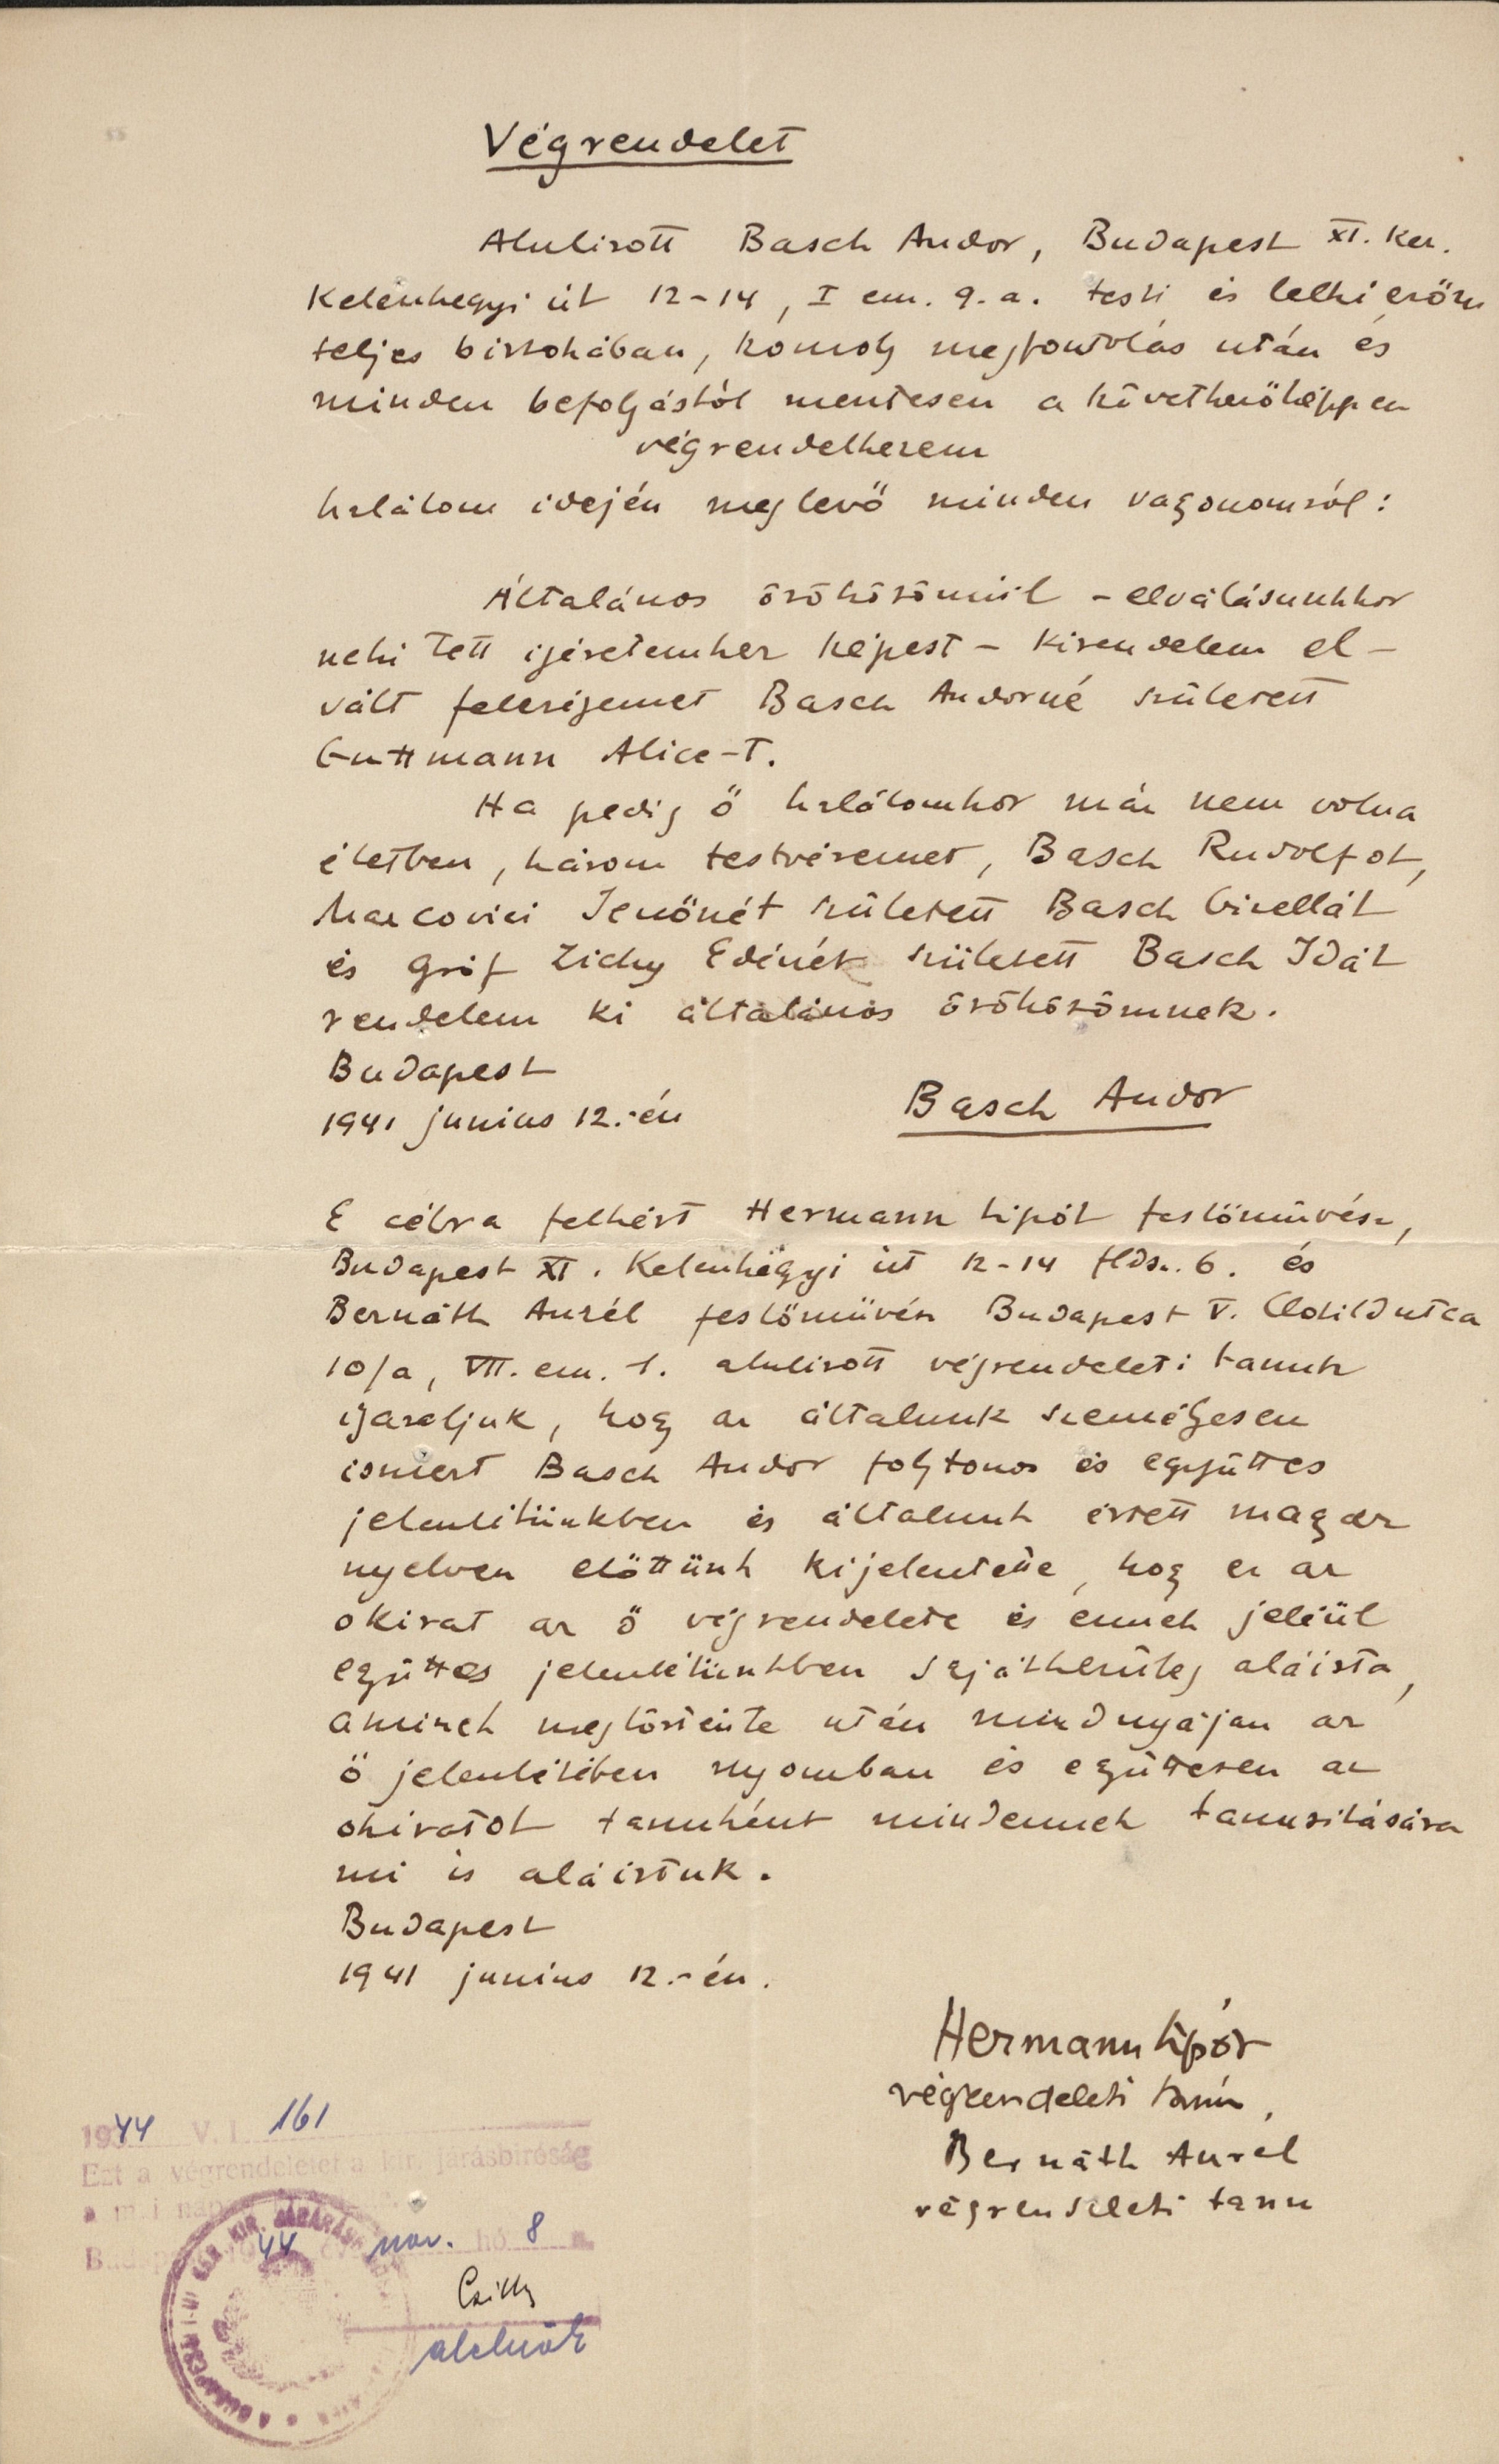 Végrendelet
Alulirott Basch Andor, Budapest XI. ker.
Kelenhegyi út 12-14, I em. 9.a. testi és lelki erőm
teljes birtokában, komoly megfontolás után és
minden befolyástól mentesen a következőképpen
végrendelkezem
halálom idején meglevő minden vagyonomról:
Általános örökösömül - elválásunkkor
neki tett igéretemhez képest - kirendelem el-
vált feleségemet Basch Andorné született
Guttmann Alice-T.
Ha pedig ő halálomkor már nem volna
életben, három testvéremet, Basch Rudolfot,
Marcovici Jenőnét született Basch Gizellát
és gróf Zichy Edénét született Basch Idát
rendelem ki általános örökösömnek.
Budapest
1941 junius 12.-én
Basch Andor
E célra felkért Hermann Lipót festőművész,
Budapest XI. Kelenhegyi út 12-14 fldsz. 6. és
Bernáth Aurél festőművész Budapest V. Clotild utca
10/a, VII. em. 1. alulirott végrendeleti tanuk
igazoljuk, hogy az általunk személyesen
ismert Basch Andor folytonos és együttes
jelenlétünkben és általunk értett magyar
nyelven előttünk kijelentette, hogy ez az
okirat az ő végrendelete és ennek jeléül
együttes jelenlétünkben sajátkezüleg aláirta,
aminek megtörténte után mindnyájan az
ő jelenlétében nyomban és együttesen az
okiratot tanuként mindennek tanusitására
mi is aláirtuk.
Budapest
1941 junius 12.-én.
Hermann Lipót
végrendeleti tanú,
Bernáth Aurél
végrendeleti tanu
1944 V. I 161
Ezt a végrendeletet a kir. járásbíróság
a m. i nap
44 nov. hó 8 n.
alelnök